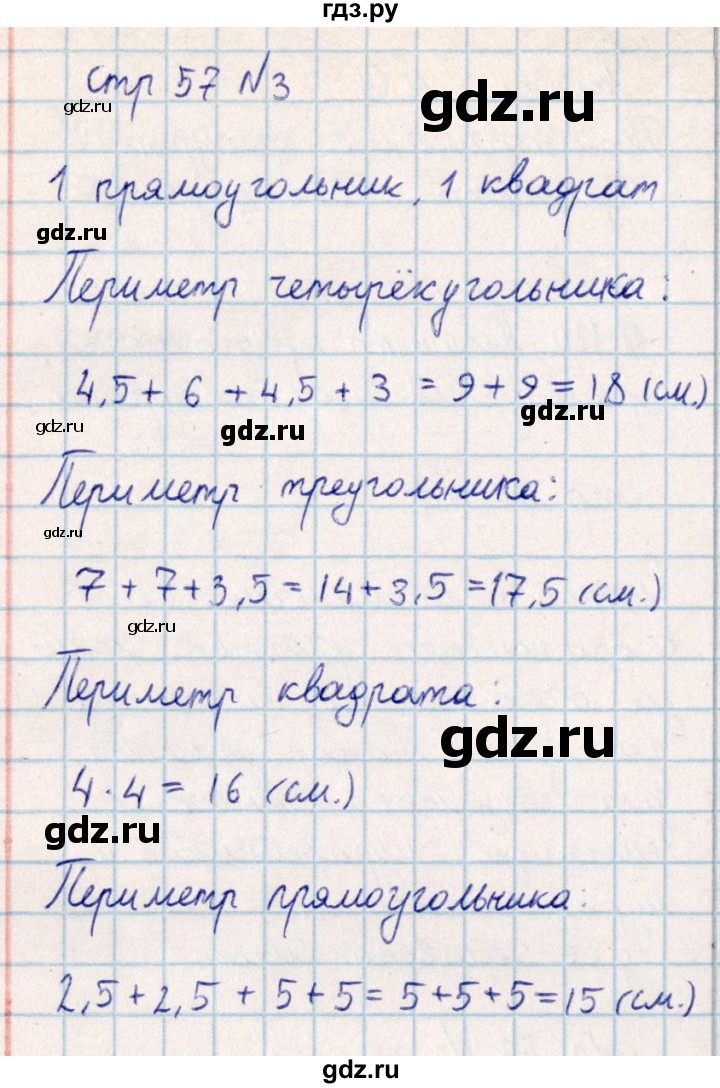 гдз.ру
стр 57 №3
gdz.ru
gdz.ru
1 прямоугольник, 1 квадрат
gdz.ru
Периметр четырёхугольника:
4,5 + 6 + 4,5 + 3 = 9 + 9 = 18 (см.)
gdz.ru
gdz.ru
gdz.ru
Периметр треугольника:
gdz.ru
7 + 7 + 3,5 = 14 + 3,5 = 17,5 (см.)
gdz.ru
Периметр квадрата:
gdz.ru
4 · 4 = 16 (см.)
gdz.ru
Периметр прямоугольника:
2,5 + 2,5 + 5 + 5 = 5 + 5 + 5 = 15 (см.)
gdz.ru